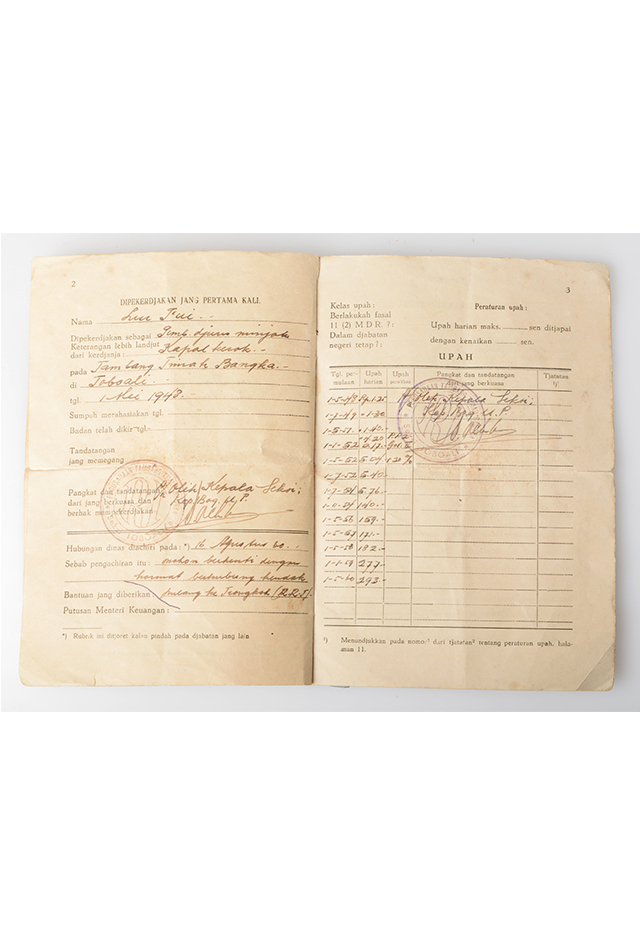 2
DIPEKERDJAKAN JANG PERTAMA KALI.
Nama Liu Pui.-
Dipekerdjakan sebagai Pemb. djurus minjak
Keterangan lebih landjut
dari kerdjanja: Kapal keruk.-
pada Tambang Timah Bangka.-
di Toboali.-
tgl. 1 Mei 1948.
Sumpah merahastakan tgl.
Badan telah dikir tgl.-
Tandatangan
jang memegang
Pangkat dan tandatangan
dari jang berkuasa dan
berhak mempekerdjakan
Oleh Kepala Seksi,
Kep. Bag. U.P.
TOBOALI
Hubungan dinas diachiri pada: *) 16 Agustus 60.-
Sebab pengachiran itu:
hormat berhubung hendak
Bantuan jang diberikan: pulang ke Tiongkok (R.R.T).
Putusan Menteri Keuangan:
*) Rubrik ini ditjoret kalau pindah pada djabatan jang lain
3
Kelas upah:
Berlakukah fasal
11 (2) M.D.R. ?:
Dalam djabatan
negeri tetap ?:
Peraturan upah:
Upah harian maks. sen ditjapai
dengan kenaikan sen.
UPAH
Tgl. per-mulaan Upah harian Upah Pangkat dan tandatangan dari jang berkuasa Tjatatan
1-5-48 1.25 Oleh Kepala Seksi,
1-7-49 1.30 Kep. Bag. U.P.
1-5-51 1.40
1-1-52
1-5-52 5.04
1-7-52 5.40
1-7-54 5.76
140.-
1-5-56 159.-
1-5-57 171.-
1-5-58 182.-
1-1-59 277.-
1-5-60 293.-
TOBOALI
¹) Menundjukkan pada nomor² dari tjatatan² tentang peraturan upah, hala-
aman 11.